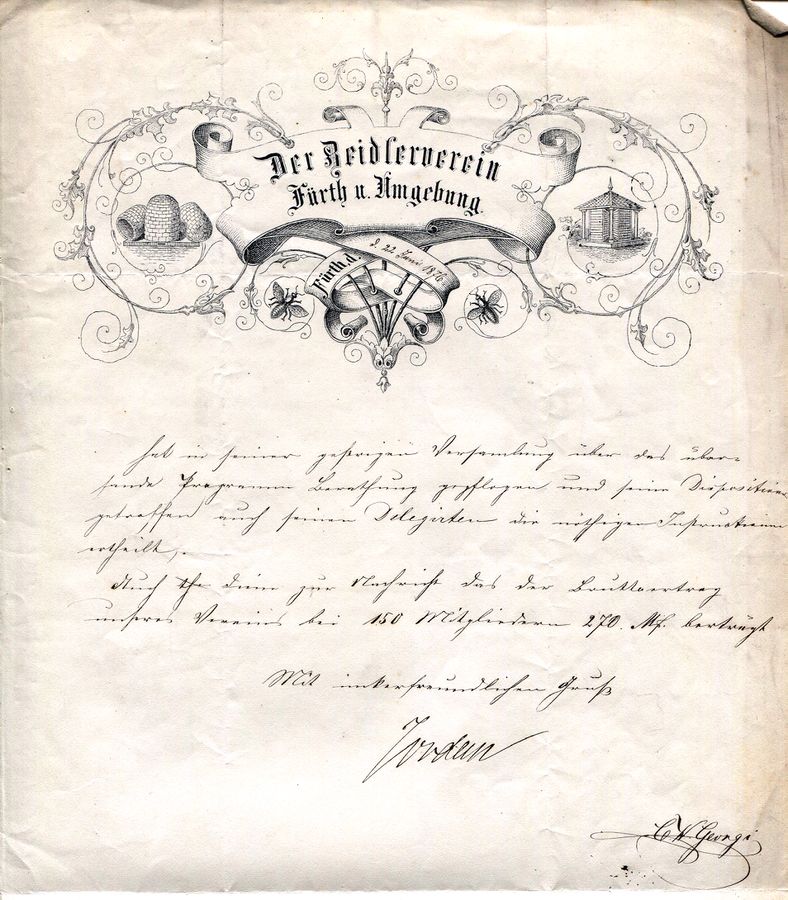 Der Zeidlerverein
Fürth u. Umgebung
Fürth, d. d 22 Juni 1876
hat in seiner gestrigen Versamlung über das über-
sande Programm Berathung gepflogen und seine Dispositionen
getroffen auch seinen Delegirten die nöthigen Instructionen
ertheilt,.
Auch diene zur Nachricht das der Bruttoertrag
unseres Vereins bei 150 Mitgliedern 270. Mk. berträgt
Mit imkerfreundlichen Gruß
Jordan
Georgi